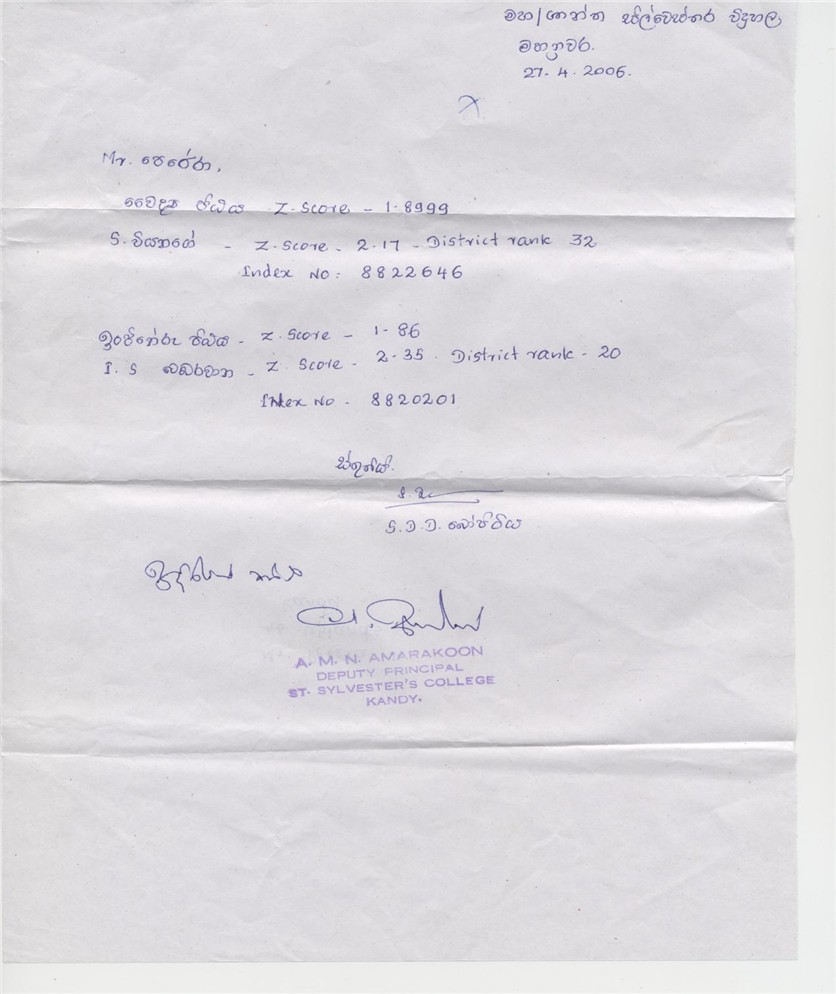 මහ/ශාන්ත සිල්වෙස්තර විදුහල,
මහනුවර.
27. 4. 2006.
Mr. පෙරේරා,
වෛද්‍ය පීඨය Z. Score - 1.8999
S. වියනගේ - Z. Score - 2.17 - District rank 32
Index No: 8822646
ඉංජිනේරු පීඨය - Z. Score - 1.86
I. S බඹරවාන - Z. Score - 2.35. District rank - 20
Index No - 8820201
ස්තුතියි.
S.D.D. බෝපිටිය
A. M. N. AMARAKOON
DEPUTY PRINCIPAL
ST. SYLVESTER'S COLLEGE
KANDY.